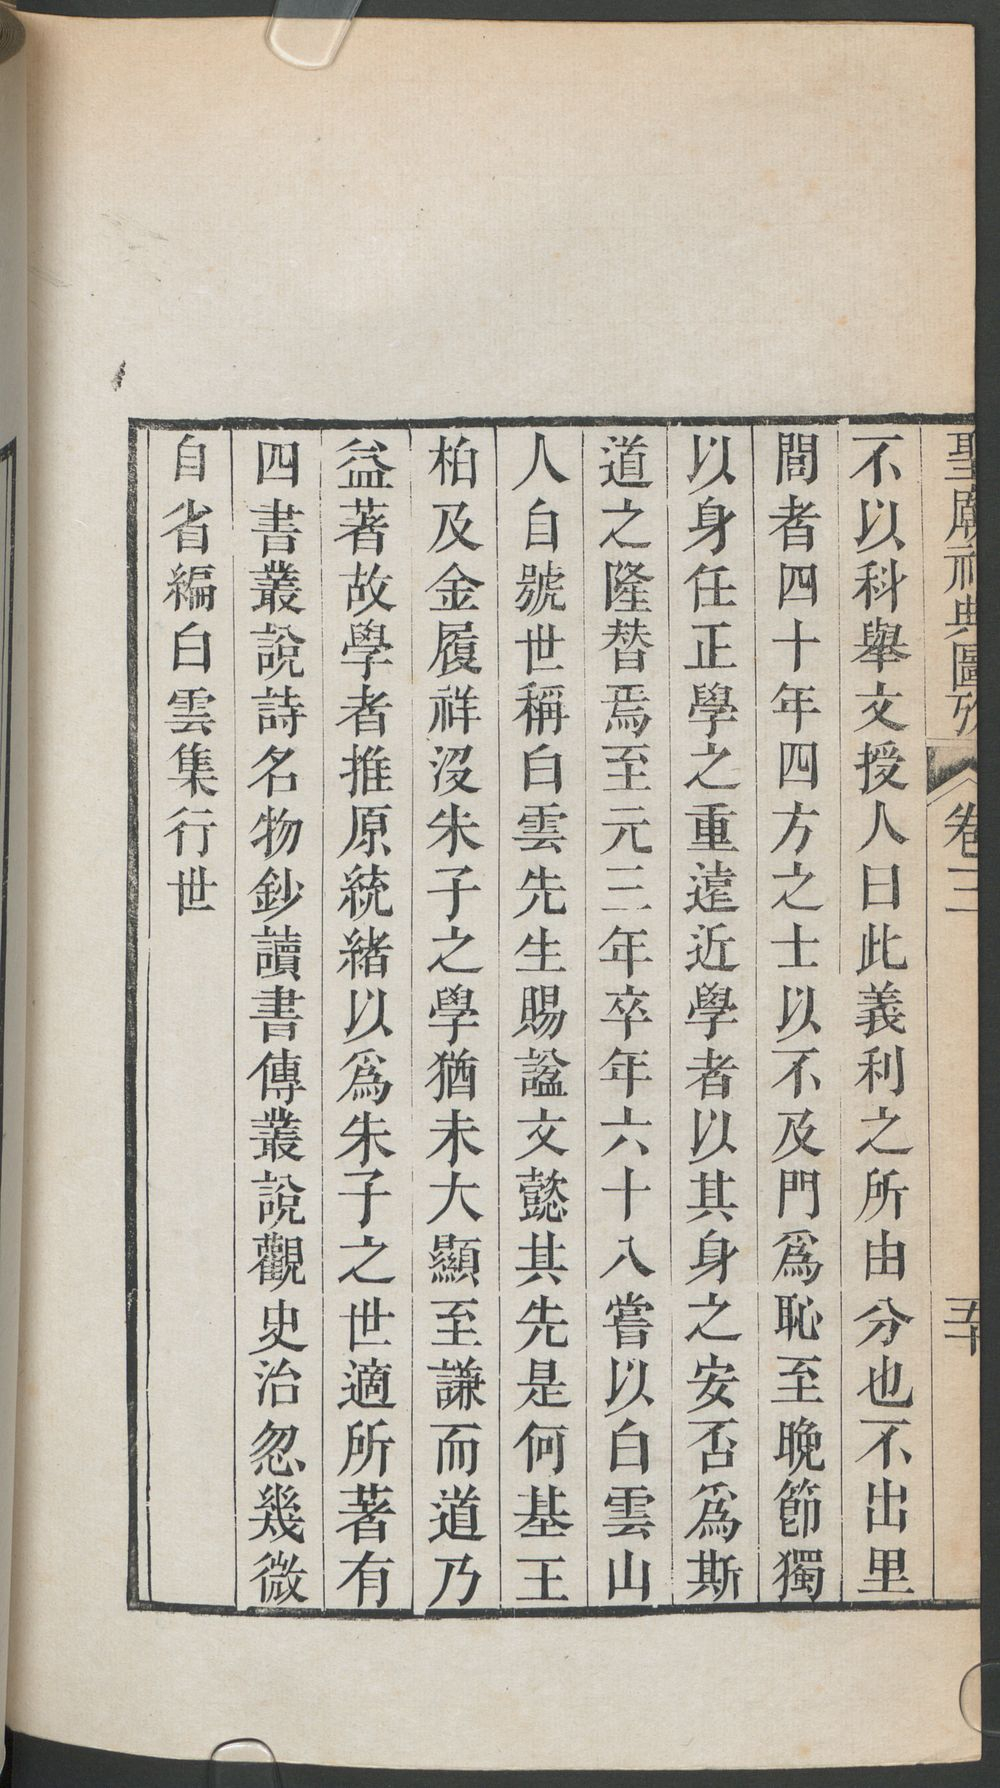 聖廟祀典圖攷 卷三 五十
不以科舉文授人曰此義利之所由分也不出里
閭者四十年四方之士以不及門爲恥至晚節獨
以身任正學之重遠近學者以其身之安否爲斯
道之隆替焉至元三年卒年六十八嘗以白雲山
人自號世稱白雲先生賜諡文懿其先是何基王
柏及金履祥沒朱子之學猶未大顯至謙而道乃
益著故學者推原統緒以爲朱子之世適所著有
四書叢說詩名物鈔讀書傳叢說觀史治忽幾微
自省編白雲集行世